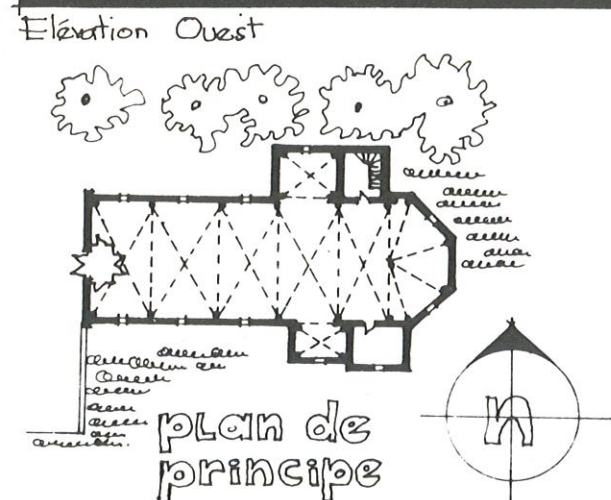 Elévation Ouest
plan de
principe
n